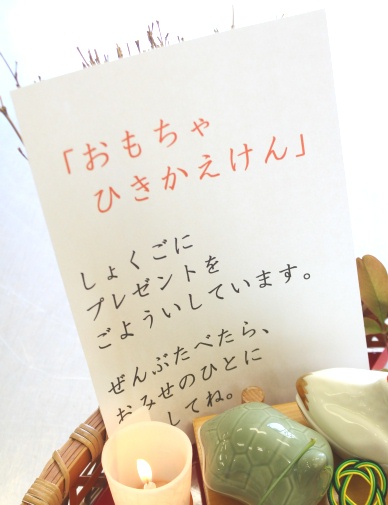 「おもちゃ
ひきかえけん」
しょくごに
プレゼントを
ごよういしています。
ぜんぶたべたら、
おみせのひとに
してね。